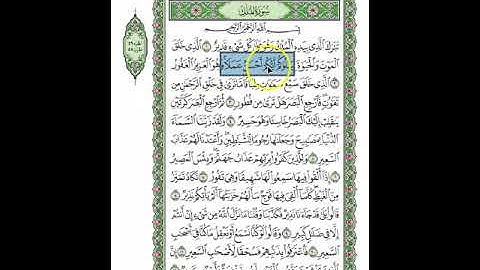 سُورَةُ الْمُلْكِ
بِسْمِ اللَّهِ الرَّحْمَٰنِ الرَّحِيمِ
تَبَٰرَكَ الَّذِي بِيَدِهِ الْمُلْكُ وَهُوَ عَلَىٰ كُلِّ شَيْءٍ قَدِيرٌ ١ الَّذِي خَلَقَ
الْمَوْتَ وَالْحَيَوٰةَ لِيَبْلُوَكُمْ أَيُّكُمْ أَحْسَنُ عَمَلًا وَهُوَ الْعَزِيزُ الْغَفُورُ
٢ الَّذِي خَلَقَ سَبْعَ سَمَٰوَٰتٍ طِبَاقًا مَّا تَرَىٰ فِي خَلْقِ الرَّحْمَٰنِ مِن
تَفَٰوُتٍ فَارْجِعِ الْبَصَرَ هَلْ تَرَىٰ مِن فُطُورٍ ٣ ثُمَّ ارْجِعِ الْبَصَرَ كَرَّتَيْنِ
يَنقَلِبْ إِلَيْكَ الْبَصَرُ خَاسِئًا وَهُوَ حَسِيرٌ ٤ وَلَقَدْ زَيَّنَّا السَّمَاءَ
الدُّنْيَا بِمَصَٰبِيحَ وَجَعَلْنَٰهَا رُجُومًا لِّلشَّيَٰطِينِ وَأَعْتَدْنَا لَهُمْ عَذَابَ
السَّعِيرِ ٥ وَلِلَّذِينَ كَفَرُوا بِرَبِّهِمْ عَذَابُ جَهَنَّمَ وَبِئْسَ الْمَصِيرُ
٦ إِذَا أُلْقُوا فِيهَا سَمِعُوا لَهَا شَهِيقًا وَهِيَ تَفُورُ ٧ تَكَادُ تَمَيَّزُ
مِنَ الْغَيْظِ كُلَّمَا أُلْقِيَ فِيهَا فَوْجٌ سَأَلَهُمْ خَزَنَتُهَا أَلَمْ يَأْتِكُمْ نَذِيرٌ ٨
قَالُوا بَلَىٰ قَدْ جَاءَنَا نَذِيرٌ فَكَذَّبْنَا وَقُلْنَا مَا نَزَّلَ اللَّهُ مِن شَيْءٍ إِنْ أَنتُمْ
إِلَّا فِي ضَلَٰلٍ كَبِيرٍ ٩ وَقَالُوا لَوْ كُنَّا نَسْمَعُ أَوْ نَعْقِلُ مَا كُنَّا فِي أَصْحَٰبِ
السَّعِيرِ ١٠ فَاعْتَرَفُوا بِذَنبِهِمْ فَسُحْقًا لِّأَصْحَٰبِ السَّعِيرِ ١١